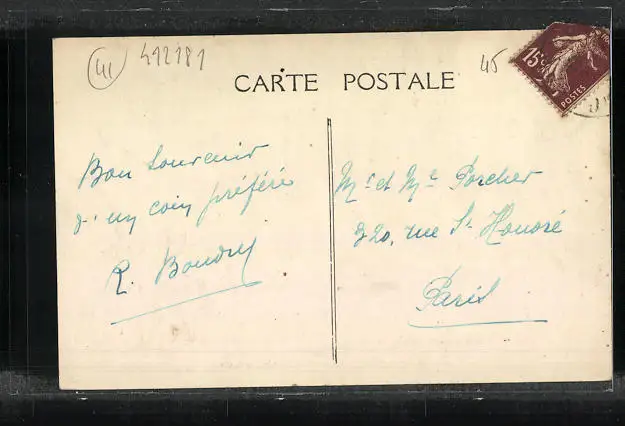 41
412181
45
CARTE POSTALE
15c
POSTES
Bon souvenir
d'un coin préféré
R. Boudry
Mr et Me Porcher
320, rue St Honoré
Paris